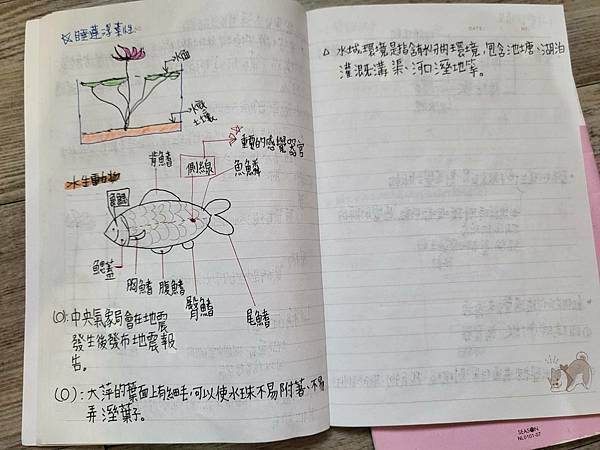 水面
水底
土壤
水生動物
背鰭
側線
重要的感覺器官
魚鱗
鰓蓋
胸鰭
腹鰭
臀鰭
尾鰭
(O):中央氣象局會在地震
發生後發布地震報
告。
(O):大萍的葉面上有細毛,可以使水珠不易附著、不易
弄溼葉子。
△ 水域環境是指含有水的環境,包含池塘、湖泊
灌溉溝渠、河口溼地等。
DATE
NO.
SEASON
NL0101-07